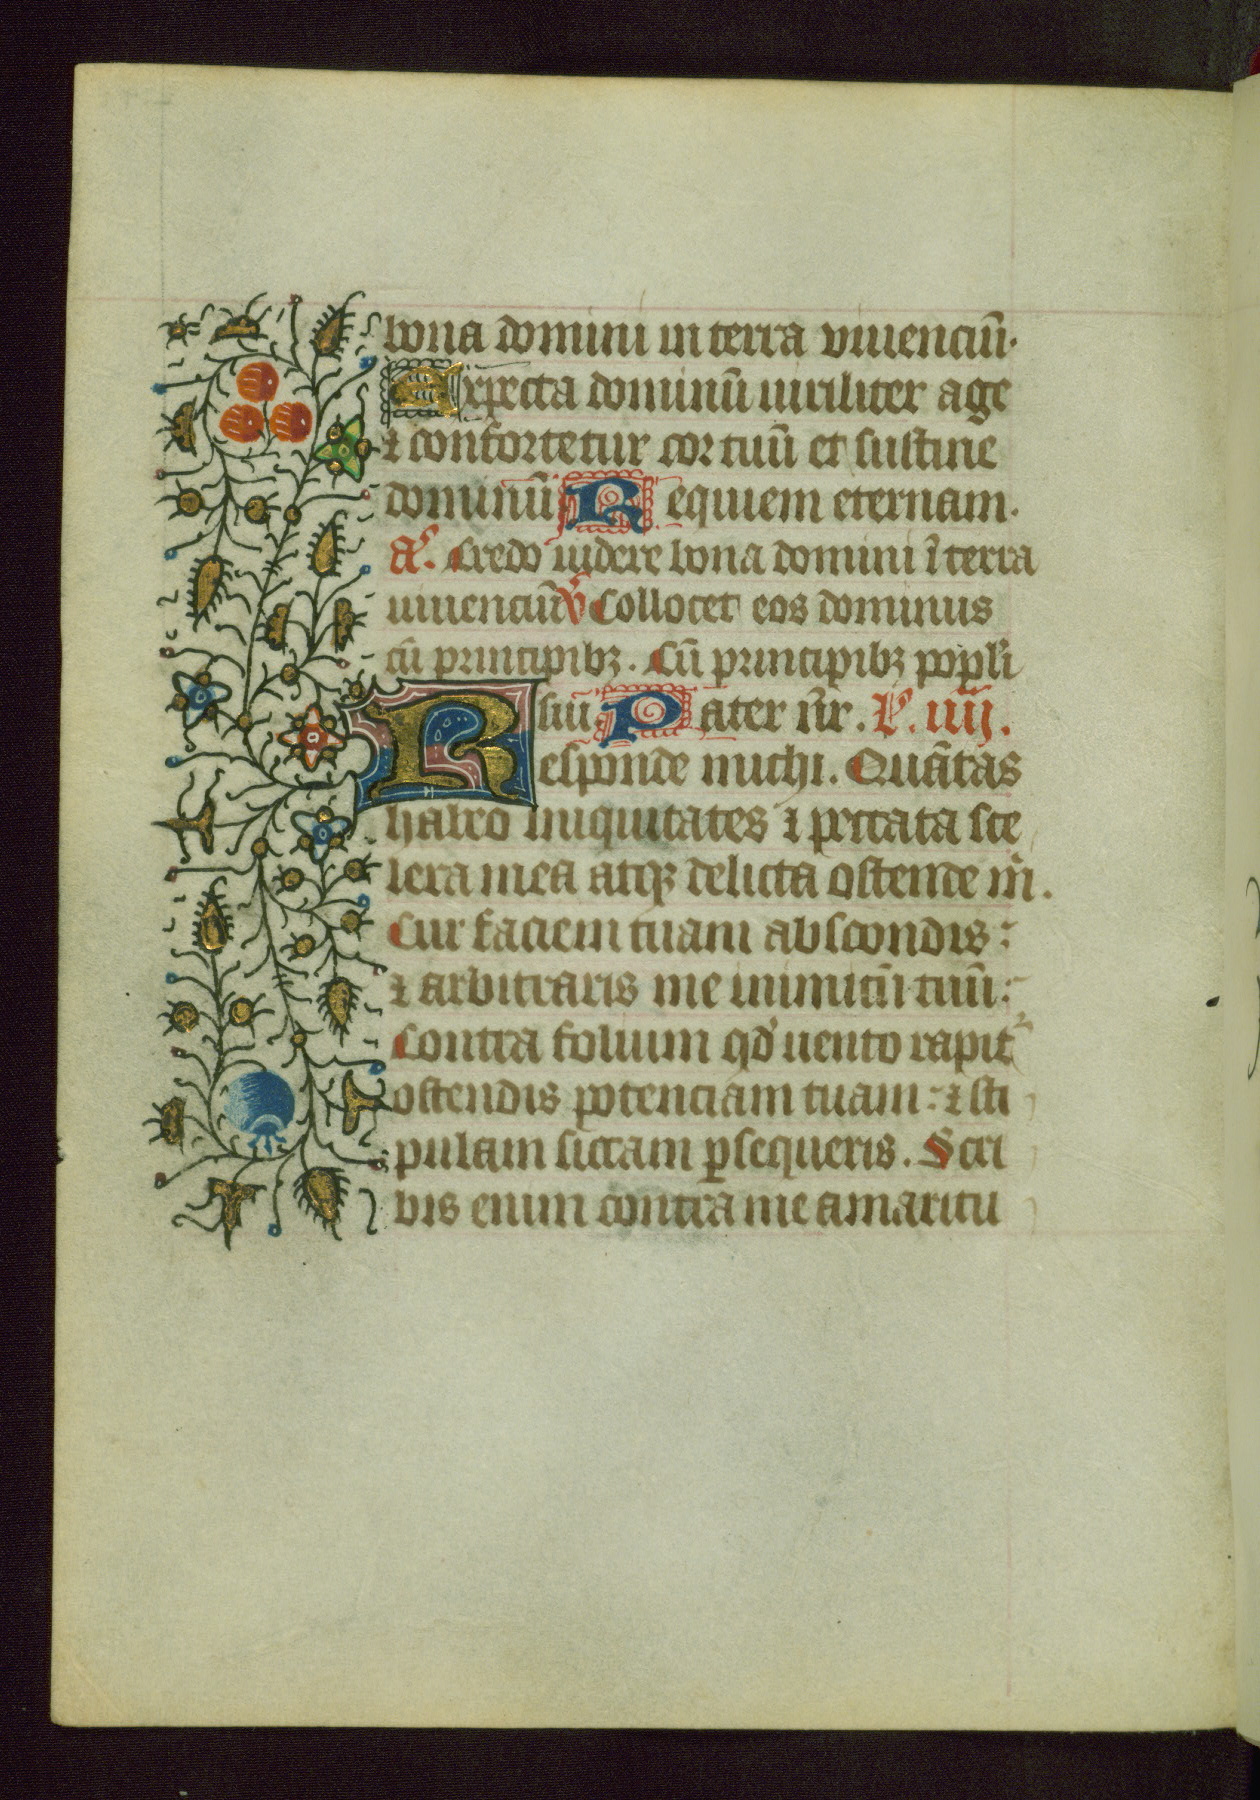 bona domini in terra viuenciū.
Expecta dominū uiriliter age
⁊ confortetur cor tuū et sustine
dominū Requiem eternam.
añ. Credo uidere bona domini ī terra
uiuenciū v̄ Collocet eos dominus
cū principibꝫ. Cū principibꝫ popli
sui Pater nr̄. L. iiij.
Responde michi. Quātas
habeo iniquitates ⁊ peccata sce
lera mea atqꝫ delicta ostende m̄.
Cur faciem tuam abscondis:
⁊ arbitraris me inimicū tuū:
Contra folium qd' uento rapit᷑
ostendis potenciam tuam: ⁊ sti
pulam siccam ꝑsequeris. Scri
bis enim contra me amaritu